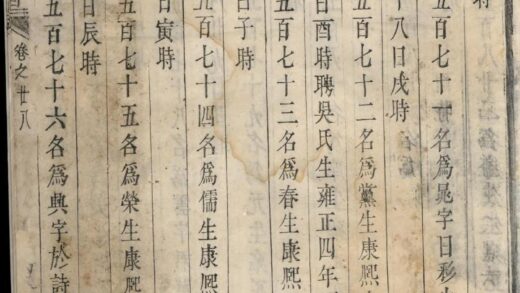 時
五百七十名為晁字日彩
十八日戌時
五百七十二名為黨生康熙
日酉時聘吳氏生雍正四年
五百七十三名為春生康熙
日子時
五百七十四名為儒生康熙
日寅時
五百七十五名為榮生康熙
日辰時
五百七十六名為興字於詩
卷之廿八